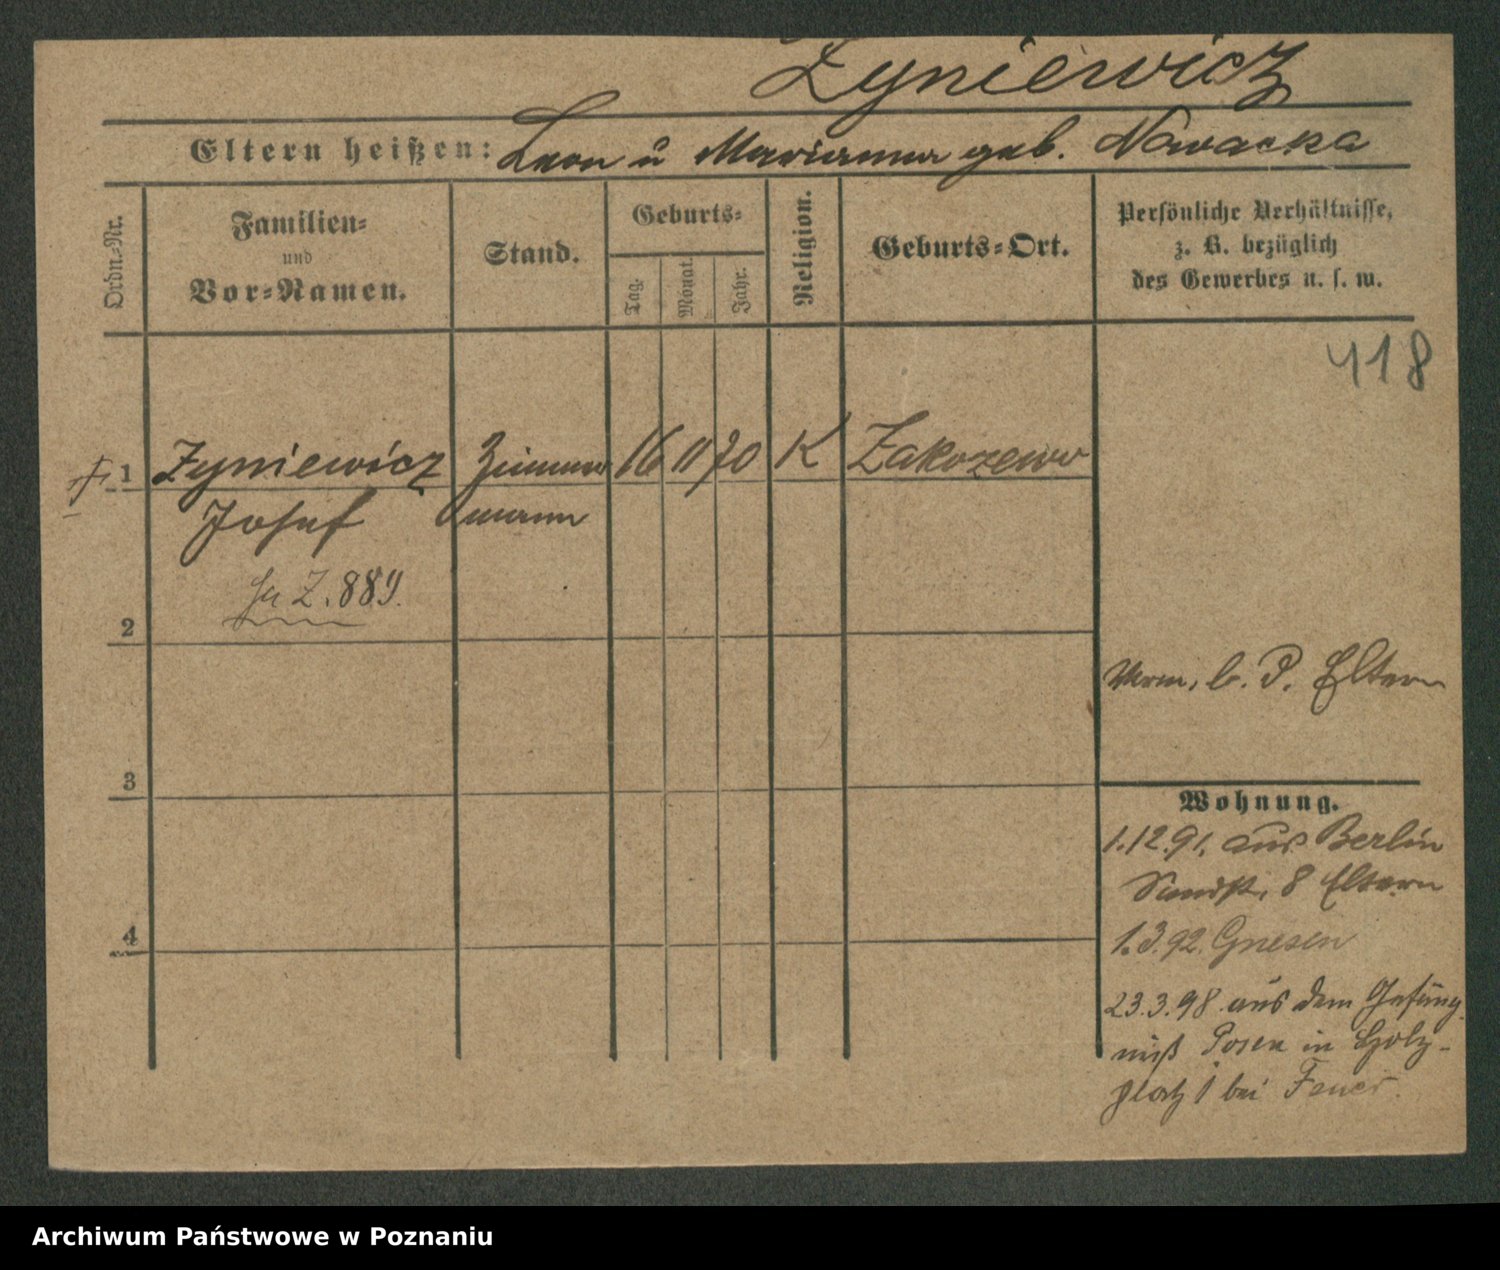 Zyniewicz
Eltern heißen: Leon u Marianna geb. Nowacka
Ordn.-Nr.
Familien-
und
Vor-Namen.
Stand.
Geburts-
Tag.
Monat.
Jahr.
Religion.
Geburts-Ort.
Persönliche Verhältnisse,
z. B. bezüglich
des Gewerbes u. s. w.
418
1 Zyniewicz Zimmer 16 11 70 K Zakozewo
Josef mann
Z. 889.
2
b. d. Eltern
3
Wohnung.
1.12.91. aus Berlin
Sandstr. 8 Eltern
4
1.3.92. Gnesen
23.3.98 aus dem Gefäng
niß Posen in Holz-
platz 1 bei
Archiwum Państwowe w Poznaniu